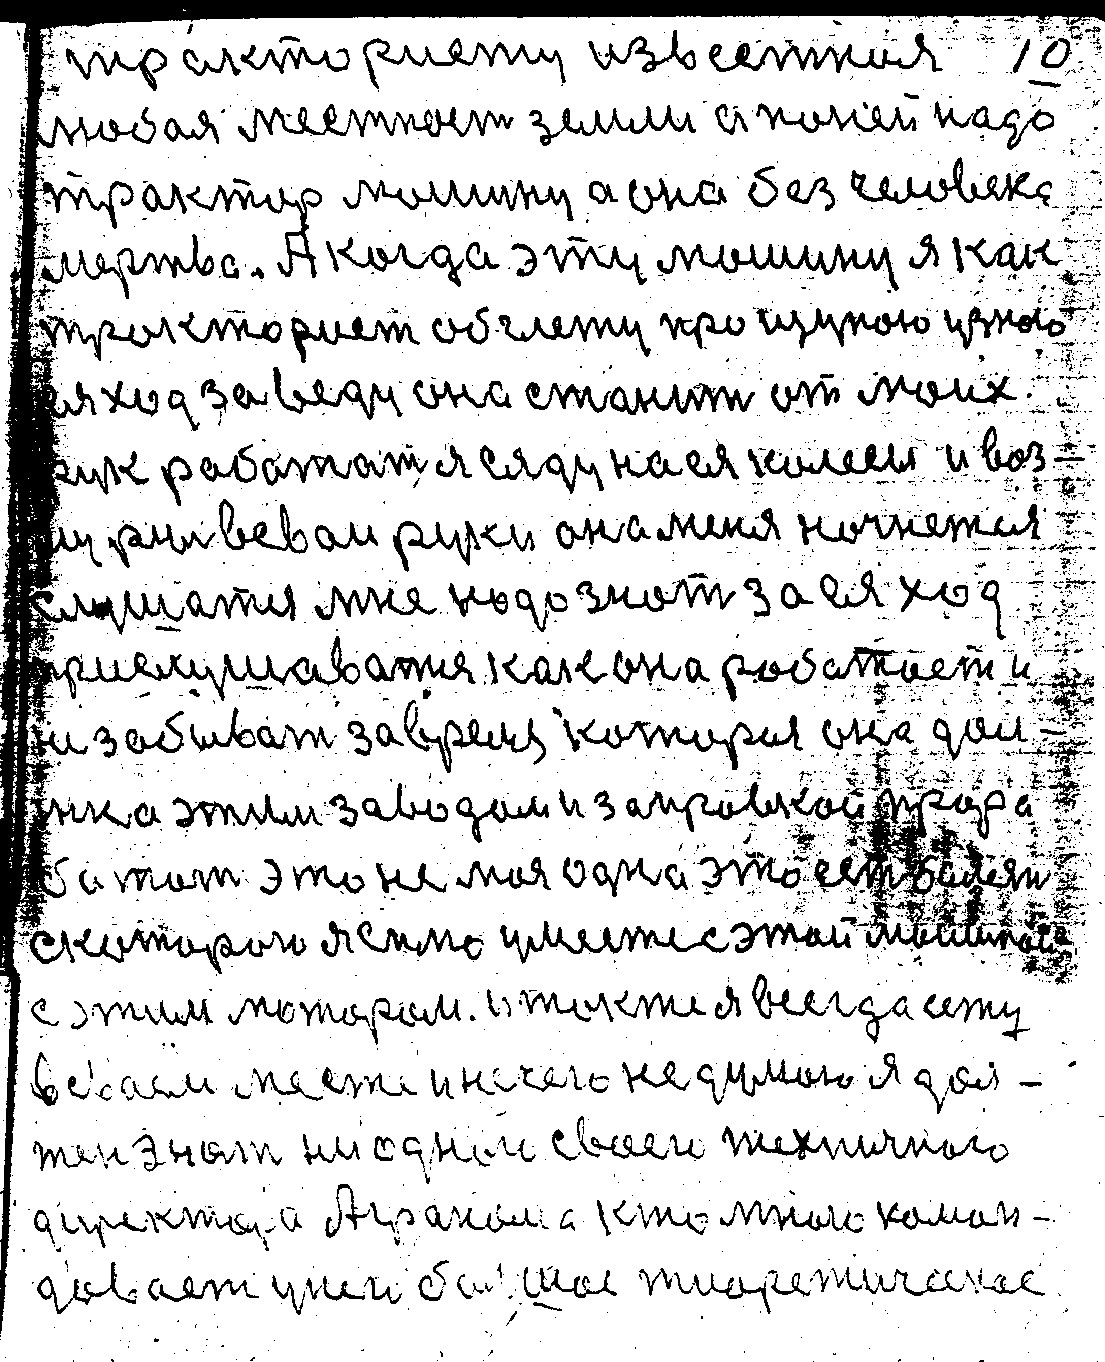 трактористу известная 10
любая местност земли а поней надо
трактор мошину а она без человека
мертва. А когда эту мошину я как
тракторист обглежу про щупаю узнаю
ея ход заведу она станит от моих
рук работат я сяду на ея колесы и воз-
му рул всваи руки она меня почнется
слушатия мне надо знат за ея ход
прислушаватя как она работает и
ни забыват завремя котория она дол-
жна этим заводом и заправкой прора
батат это не моя одна это ест балезн
скоторою я симо уместе с этой мошиной
с этим мотором. и также я всегда сежу
всваем месте и нечего не думаю я дол-
жен знат ни одном своего техничного
директора Агранома кто мною коман-
довает унего болшое тиоретическое